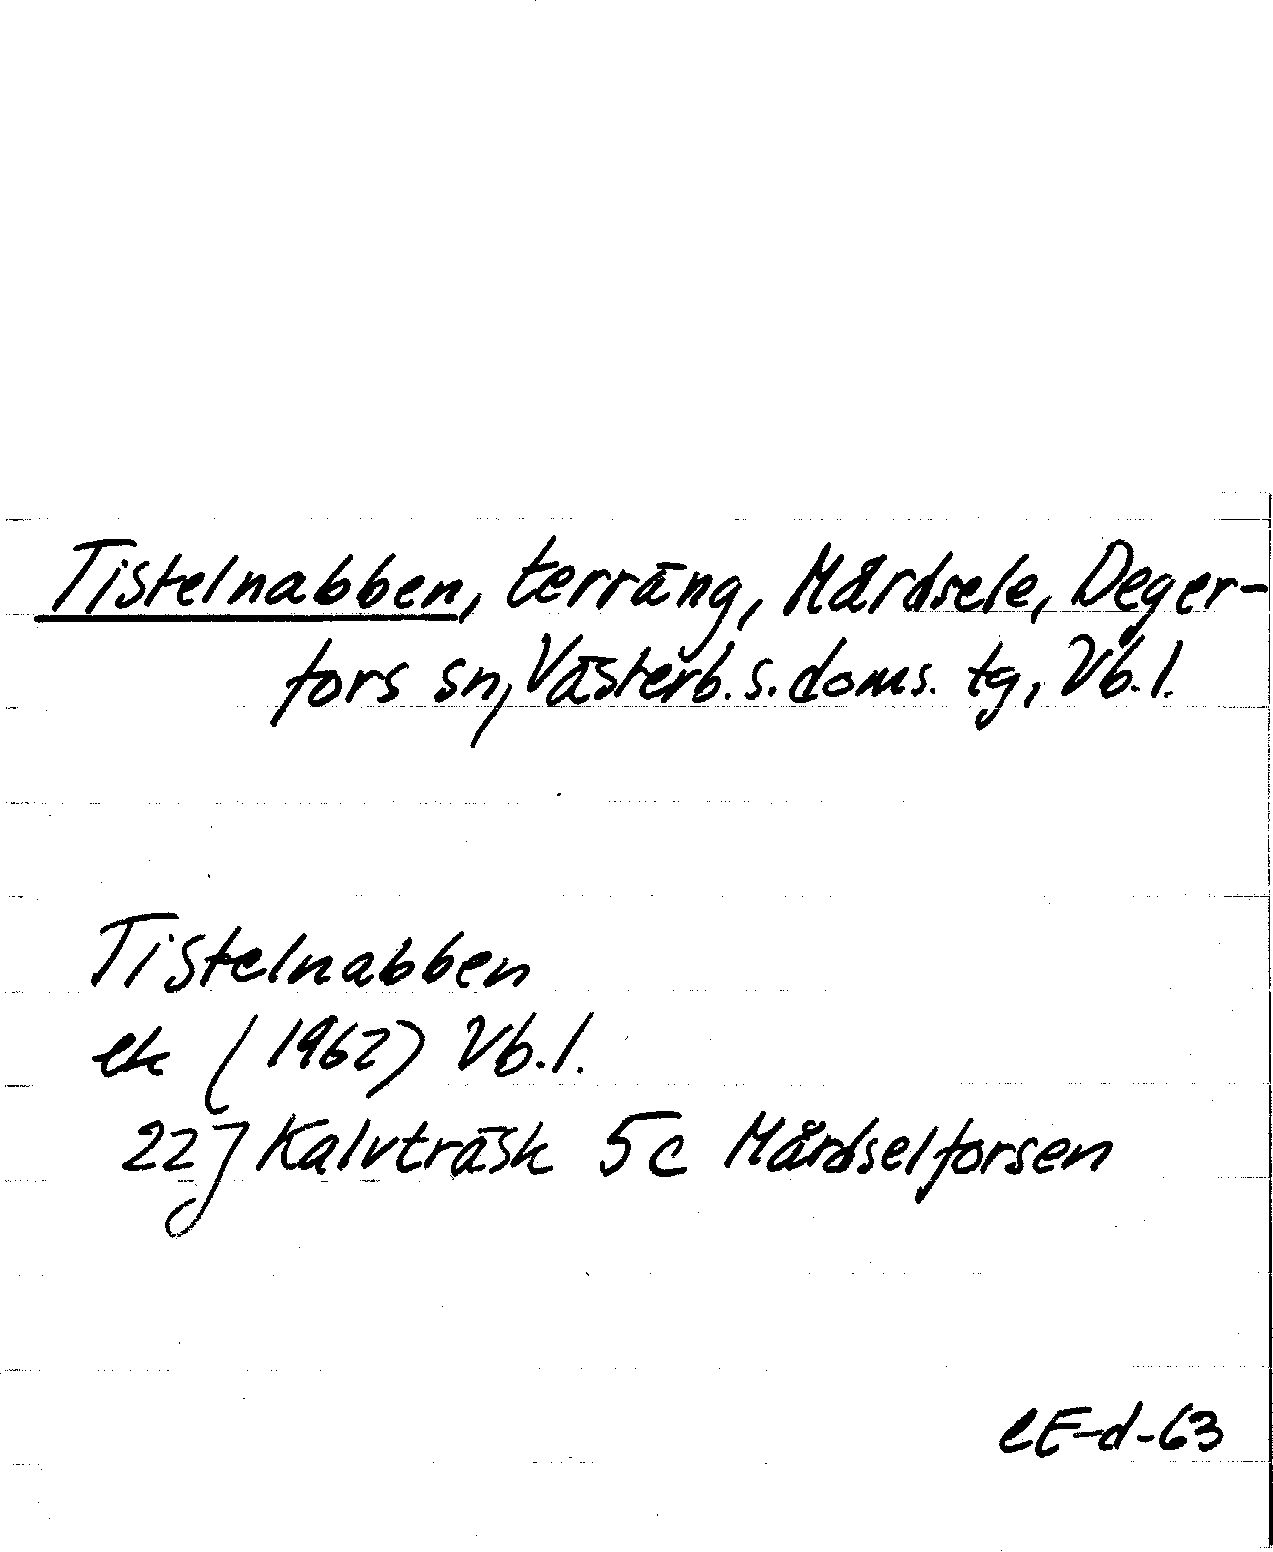 Tistelnabben, terräng, Mårdsele, Deger-
fors sn, Västerb. s. doms. tg, Vb. l.
Tistelnabben
ek (1962) Vb. l.
22J Kalvträsk 5c Mårdselforsen
eE-d-63